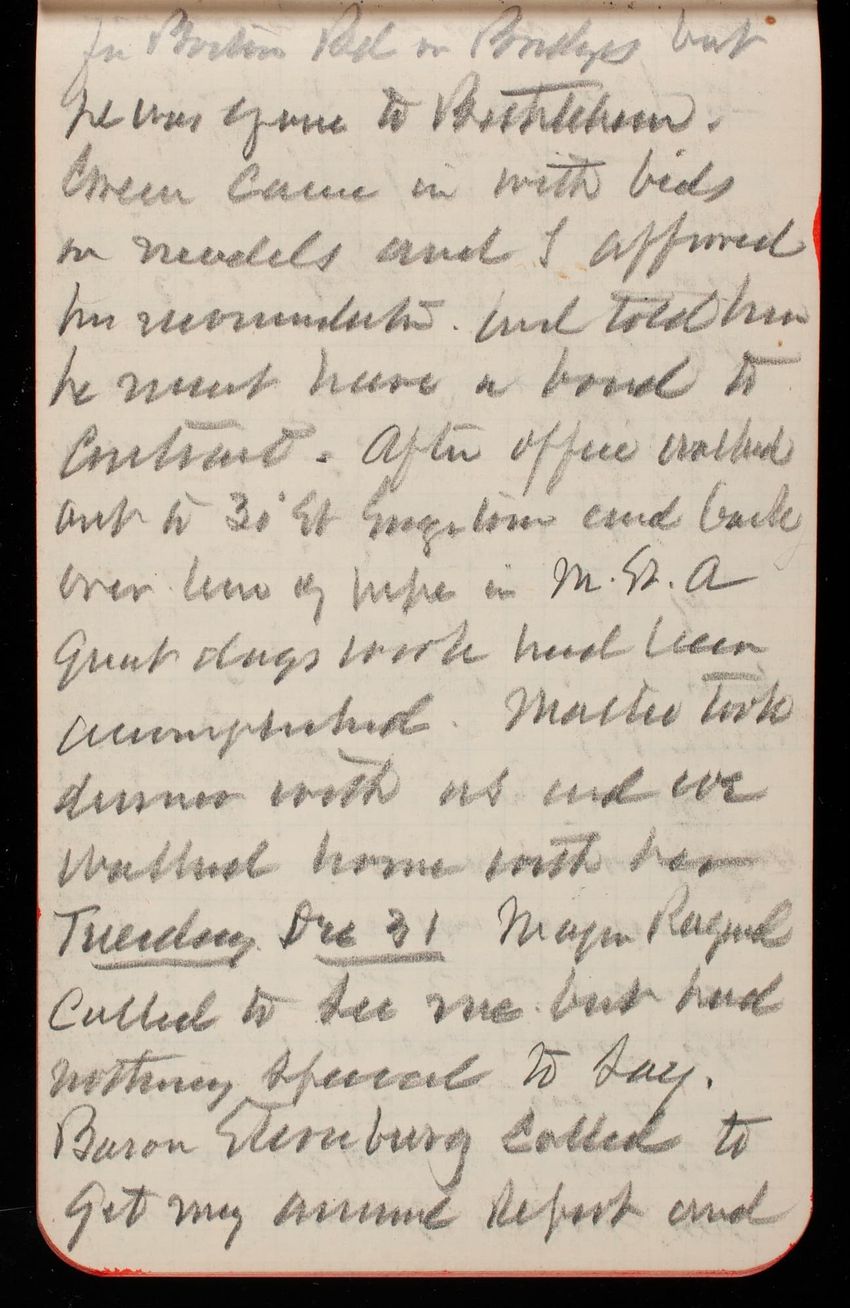 for Boston Rd on Bridges but
he was gone to Bethlehem.
Green came in with bids
on models and I approved
his recommendatn. and told him
he must have a bond to
Contract. After office walked
out to 30 St and back
over line of pipe in M. St. A
Great days work had been
accomplished. Mattie took
dinner with us and we
walked home with her
Tuesday Dec 31 Major Raymond
Called to see me but had
nothing special to say.
Baron Sternburg called to
get my annual Report and